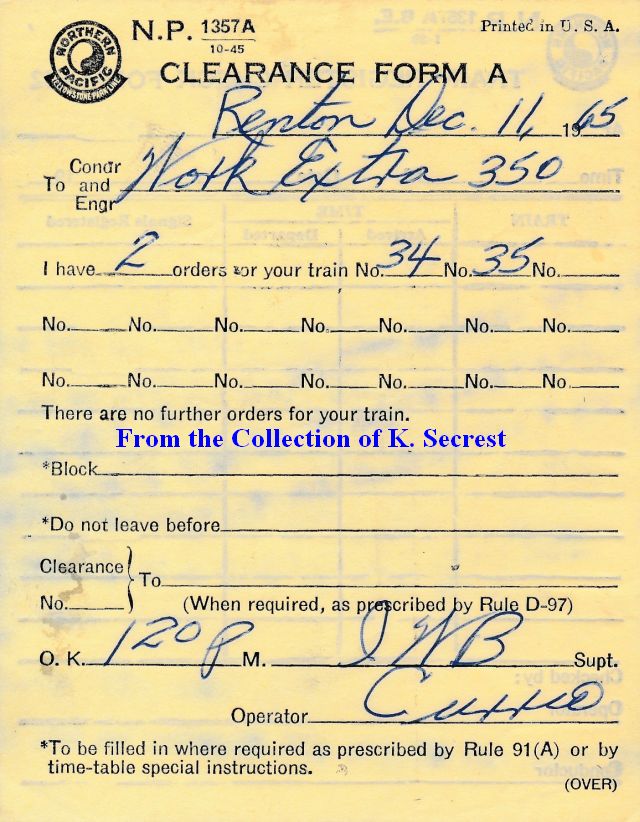 NORTHERN PACIFIC
YELLOWSTONE PARK LINE
N.P. 1357A
10-45
Printed in U. S. A.
CLEARANCE FORM A
Renton Dec. 11, 1965
To Condr and Engr Work Extra 350
I have 2 orders for your train No. 34 No. 35 No.
No. No. No. No. No. No. No.
No. No. No. No. No. No. No.
There are no further orders for your train.
From the Collection of K. Secrest
*Block
*Do not leave before
Clearance
To
No. (When required, as prescribed by Rule D-97)
O. K. 120 P M. JWB Supt.
Operator
*To be filled in where required as prescribed by Rule 91(A) or by
time-table special instructions.
(OVER)